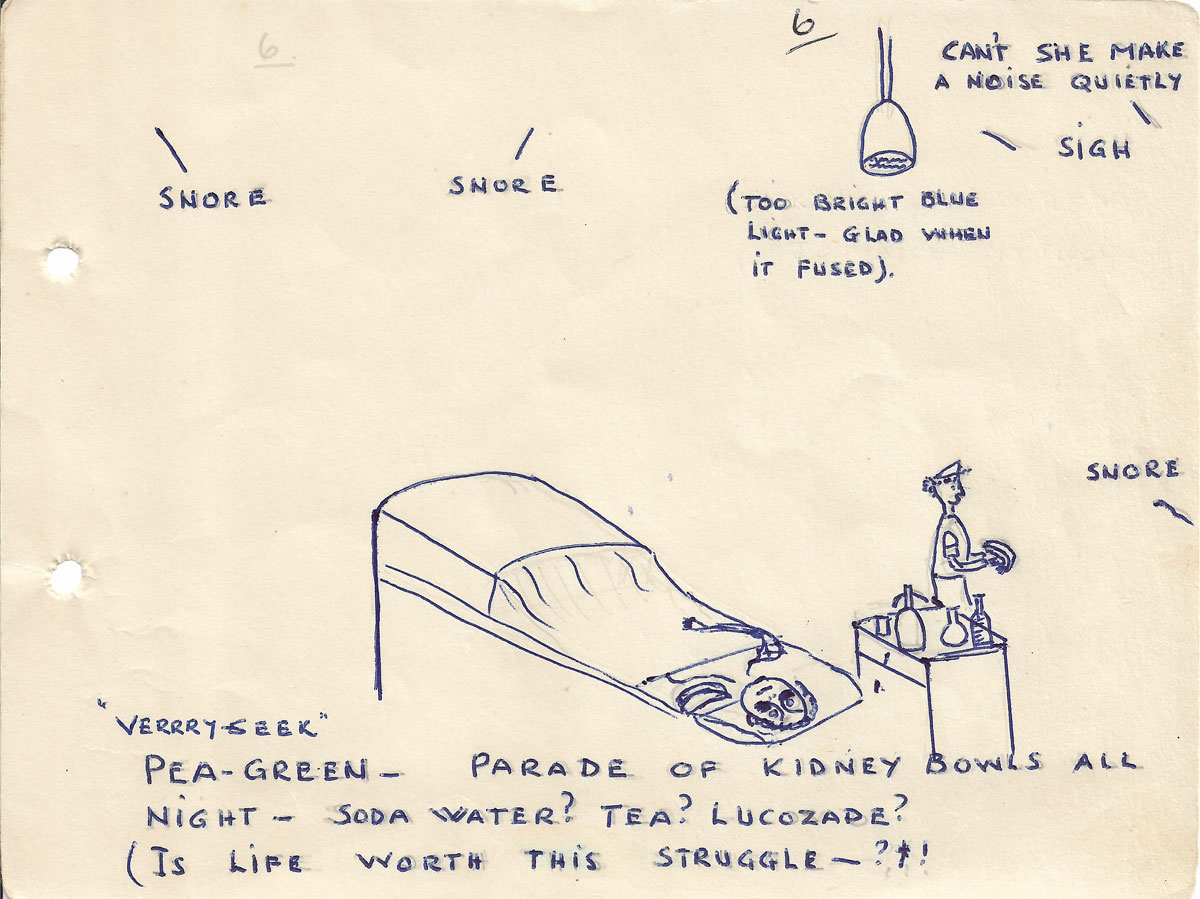 6
6
CAN'T SHE MAKE
A NOISE QUIETLY
SIGH
SNORE
SNORE
(TOO BRIGHT BLUE
LIGHT - GLAD WHEN
IT FUSED).
SNORE
"VERRRY-SEEK"
PEA-GREEN - PARADE OF KIDNEY BOWLS ALL
NIGHT - SODA WATER? TEA? LUCOZADE?
(IS LIFE WORTH THIS STRUGGLE - ?†!